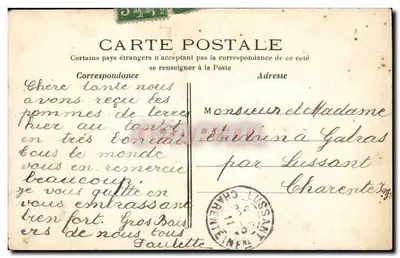 CARTE POSTALE
Certains pays étrangers n'acceptant pas la correspondance de ce coté
se renseigner à la Poste
Correspondance
Chère tante nous
avons reçu les
pommes de terres
hier au
en très bon état
tous le monde
vous en remercie
beaucoup
je vous quitte en
vous embrassant
bien fort. Gros Bais
ers de nous tous
Paulette
Adresse
Monsieur et Madame
à
par Lussant
Charente Inf
LUSSANT
CHARENTE INFRE